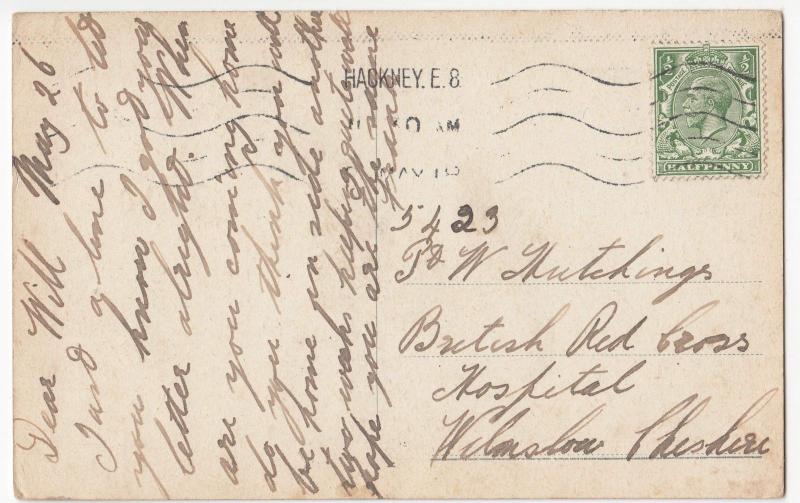 May 26
Dear Will
Just a line to let
you know I got your
letter alright. When
are you coming home
do you think you will
be home inside another
two weeks keeping quite well
hope you are the same
HACKNEY. E. 8
AM
MAY
½ ½
HALFPENNY
5423
Pt W Hutchings
British Red Cross
Hospital
Wilmslow Cheshire